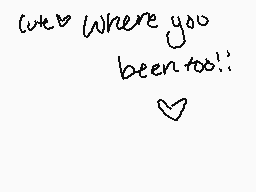 Cute♥ Where you
been too!!
♡